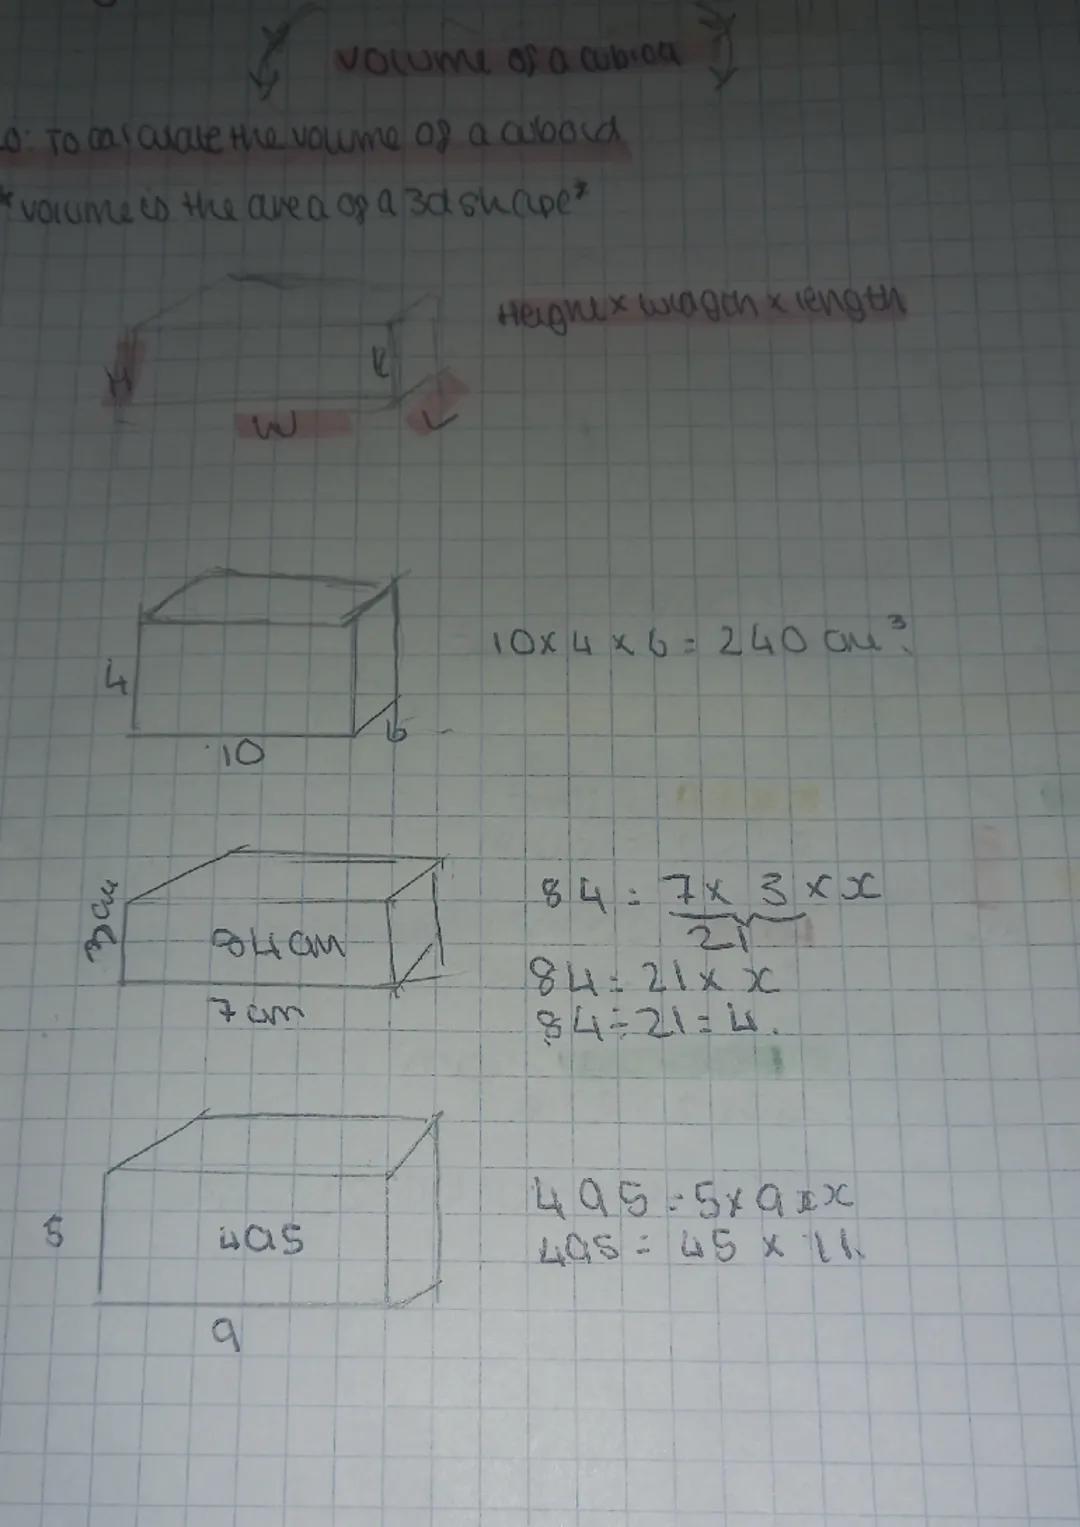 volume of a cuboid
LO: To calculate the volume of a cuboid
*volume is the area of a 3d shape*
Height x width x length
H
W
L
4
10
6
10 x 4 x 6 = 240 cm³.
3cm
84cm
7cm
84 = 7 x 3 x x
21
84 = 21 x x
84 ÷ 21 = 4.
5
495
9
495 = 5 x 9 x x
495 = 45 x 11.